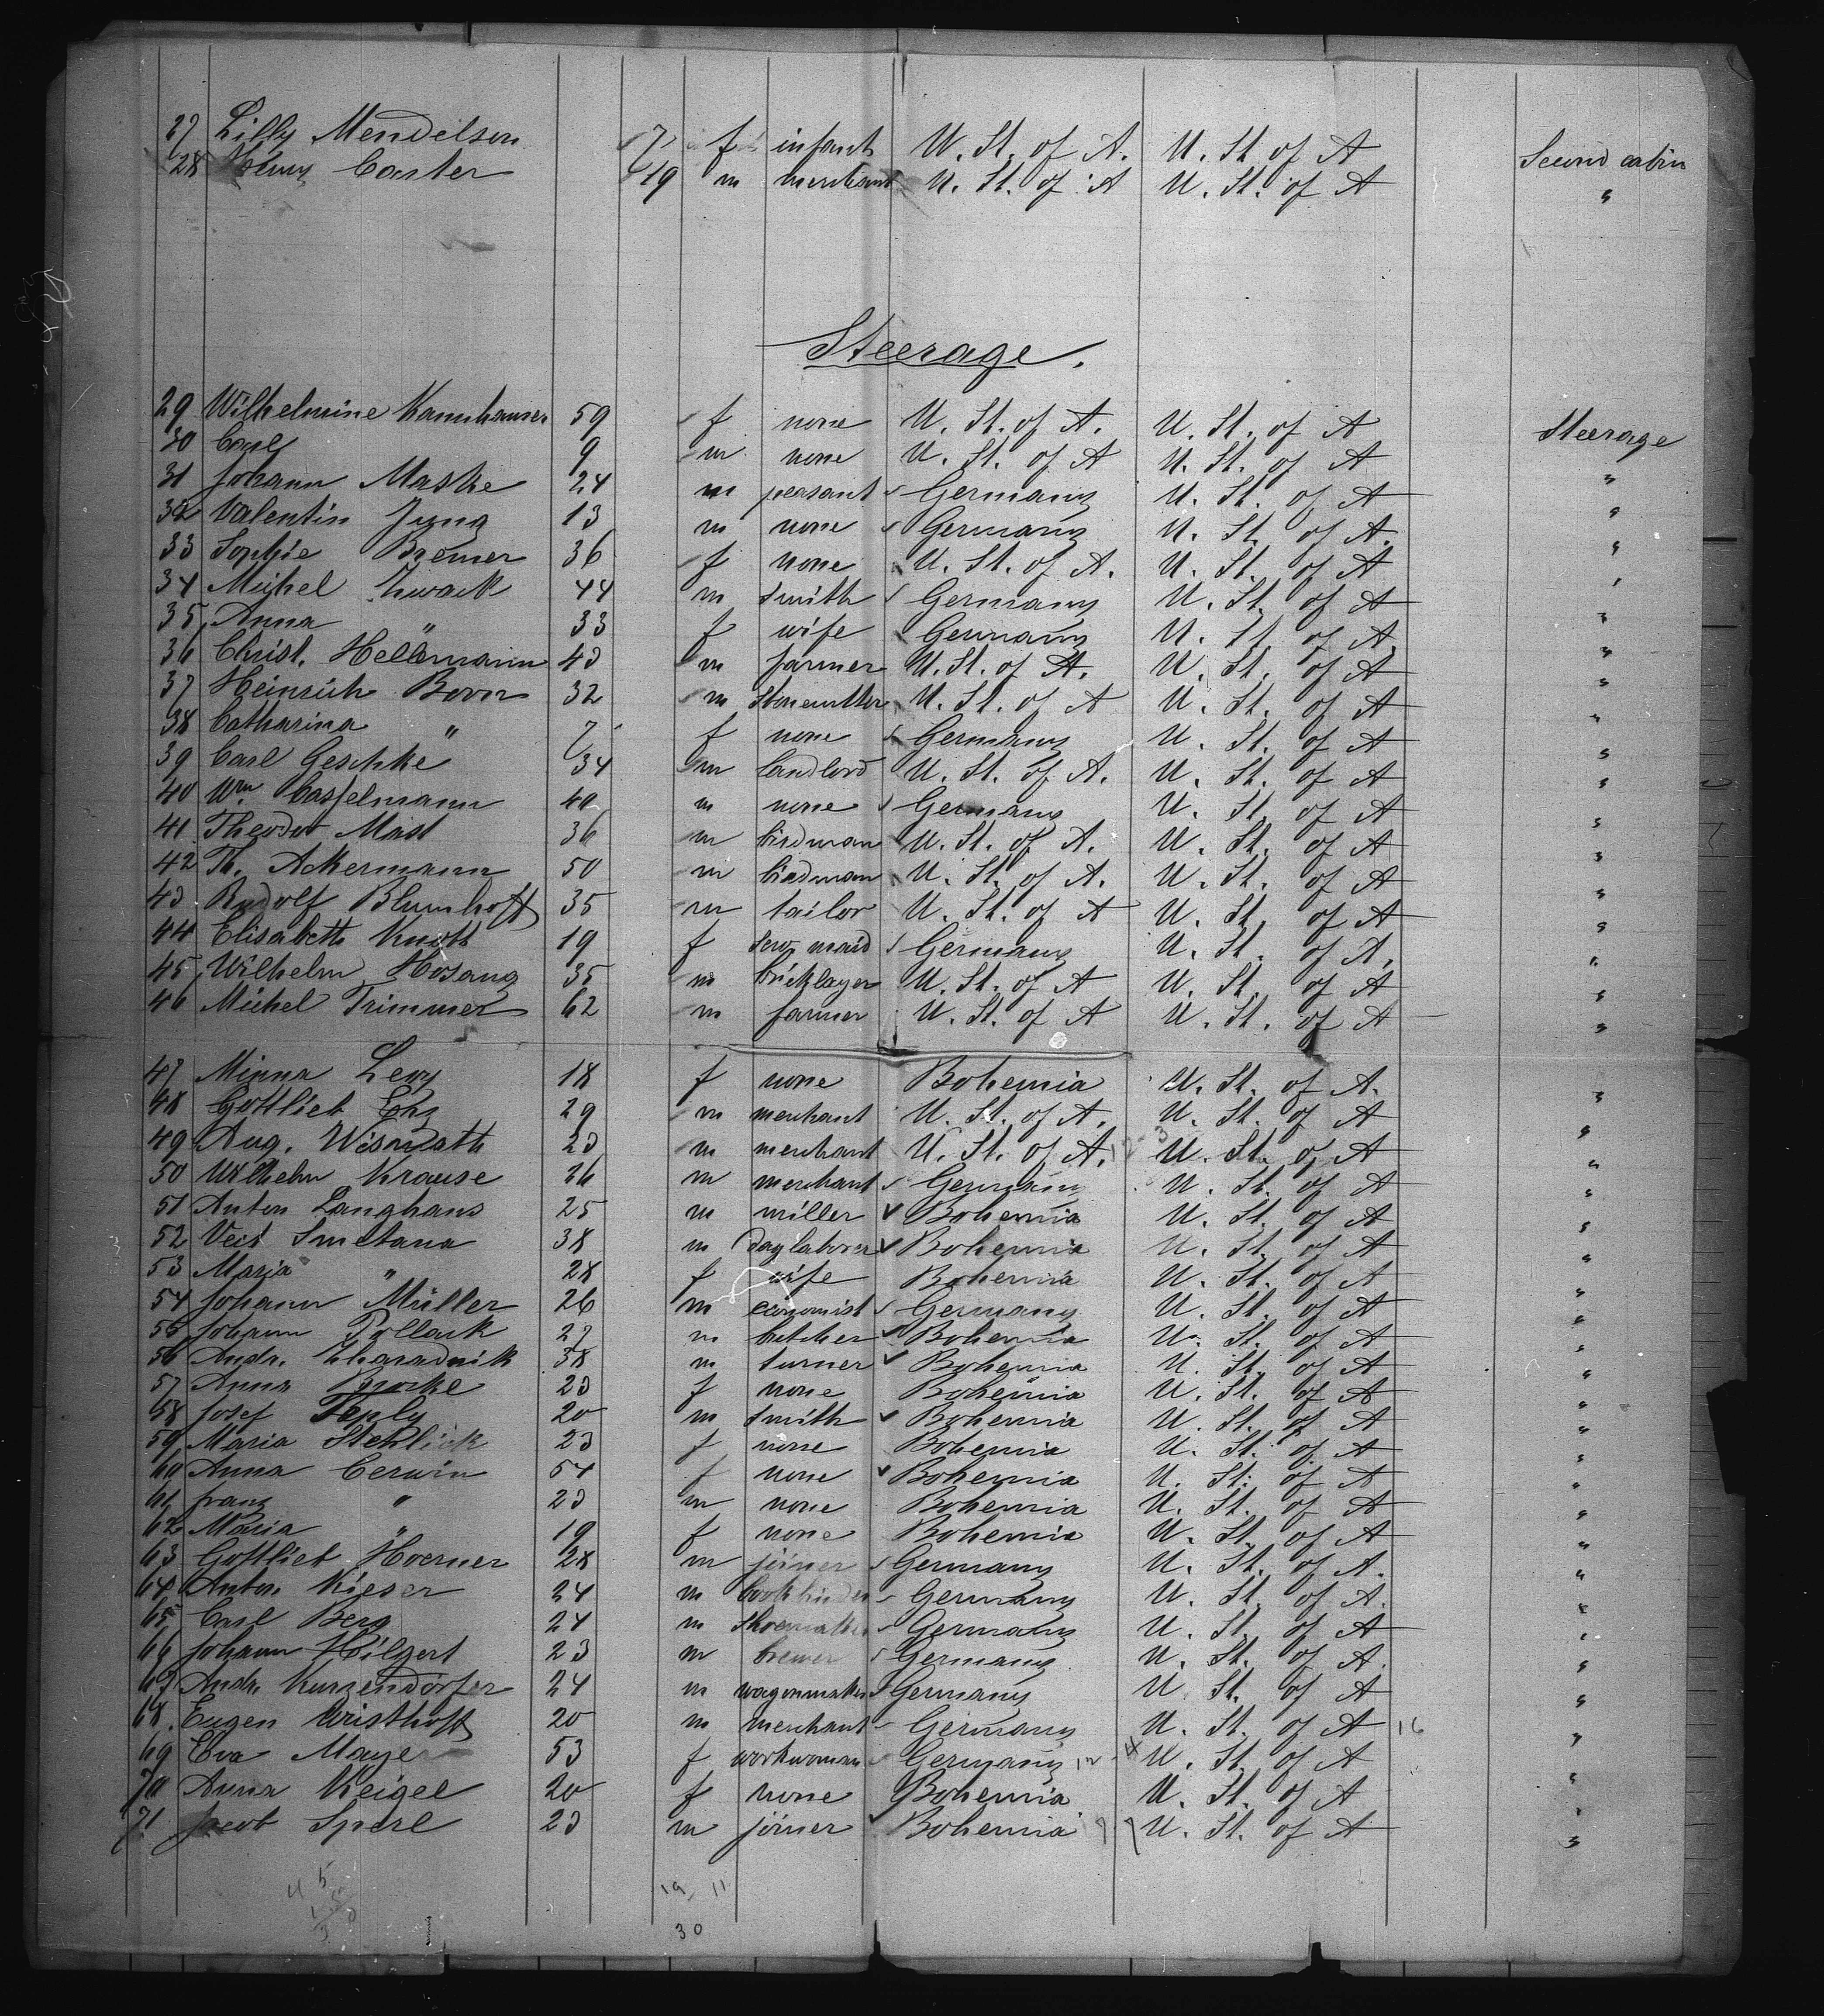 27 Lilly Mendelson 7 f infant U. St. of A. U. St. of A Second cabin
28 Henry Caster 19 m merchant U. St. of A U. St. of A "
Steerage.
29 Wilhelmine Kannhauser 59 f none U. St. of A. U. St. of A Steerage
30 Carl 9 m none U. St. of A U. St. of A "
31 Johann Maske 24 m peasant Germany U. St. of A "
32 Valentin Jung 13 m none Germany U. St. of A. "
33 Sophie Bremer 36 f none U. St. of A. U. St. of A "
34 Michel Zwack 44 m smith Germany U. St. of A "
35 Anna " 33 f wife Germany U. St. of A. "
36 Christ. Hellmann 43 m farmer U. St. of A. U. St. of A "
37 Heinrich Born 32 m stonecutter U. St. of A U. St. of A "
38 Catharina " 7 f none Germany U. St. of A "
39 Carl Geschke 34 m landlord U. St. of A. U. St. of A "
40 Wm Casselmann 40 m none Germany U. St. of A "
41 Theodor Mast 36 m birdman U. St. of A. U. St. of A "
42 Th. Ackermann 50 m birdman U. St. of A. U. St. of A "
43 Rudolf Blumhoft 35 m tailor U. St. of A U. St. of A "
44 Elisabeth Knott 19 f serv. maid Germany U. St. of A. "
45 Wilhelm Hosang 35 m bricklayer U. St. of A U. St. of A "
46 Michel Trimmer 62 m farmer U. St. of A U. St. of A "
47 Minna Levy 18 f none Bohemia U. St. of A. "
48 Gottlieb 29 m merchant U. St. of A. U. St. of A "
49 Aug. Wismath 23 m merchant U. St. of A. U. St. of A "
50 Wilhelm Krause 26 m merchant Germany U. St. of A "
51 Anton Langhans 25 m miller Bohemia U. St. of A "
52 Veit Smetana 38 m daylaborer Bohemia U. St. of A "
53 Maria " 28 f wife Bohemia U. St. of A "
54 Johann Müller 26 m economist Germany U. St. of A "
55 Johann Pollack 27 m butcher Bohemia U. St. of A "
56 Andr. Zharadnik 38 m turner Bohemia U. St. of A "
57 Anna 23 f none Bohemia U. St. of A "
58 Josef Teply 20 m smith Bohemia U. St. of A "
59 Maria Stehlick 23 f none Bohemia U. St. of A "
60 Anna Cerwin 54 f none Bohemia U. St. of A "
61 Franz " 23 m none Bohemia U. St. of A "
62 Maria " 19 f none Bohemia U. St. of A "
63 Gottlieb Hoerner 28 m joiner Germany U. St. of A. "
64 Anton Kieser 24 m bookbinder Germany U. St. of A. "
65 Carl Berg 24 m shoemaker Germany U. St. of A "
66 Johann Hilgert 23 m brewer Germany U. St. of A. "
67 Andr. Kurzendörfer 24 m wagonmaker Germany U. St. of A "
68 Eugen Wristhoft 20 m merchant Germany U. St. of A 16 "
69 Eva Maye 53 f workwoman Germany U. St. of A "
70 Anna Keigel 20 f none Bohemia U. St. of A "
71 Jacob Sperl 23 m joiner Bohemia U. St. of A "
19 11
30